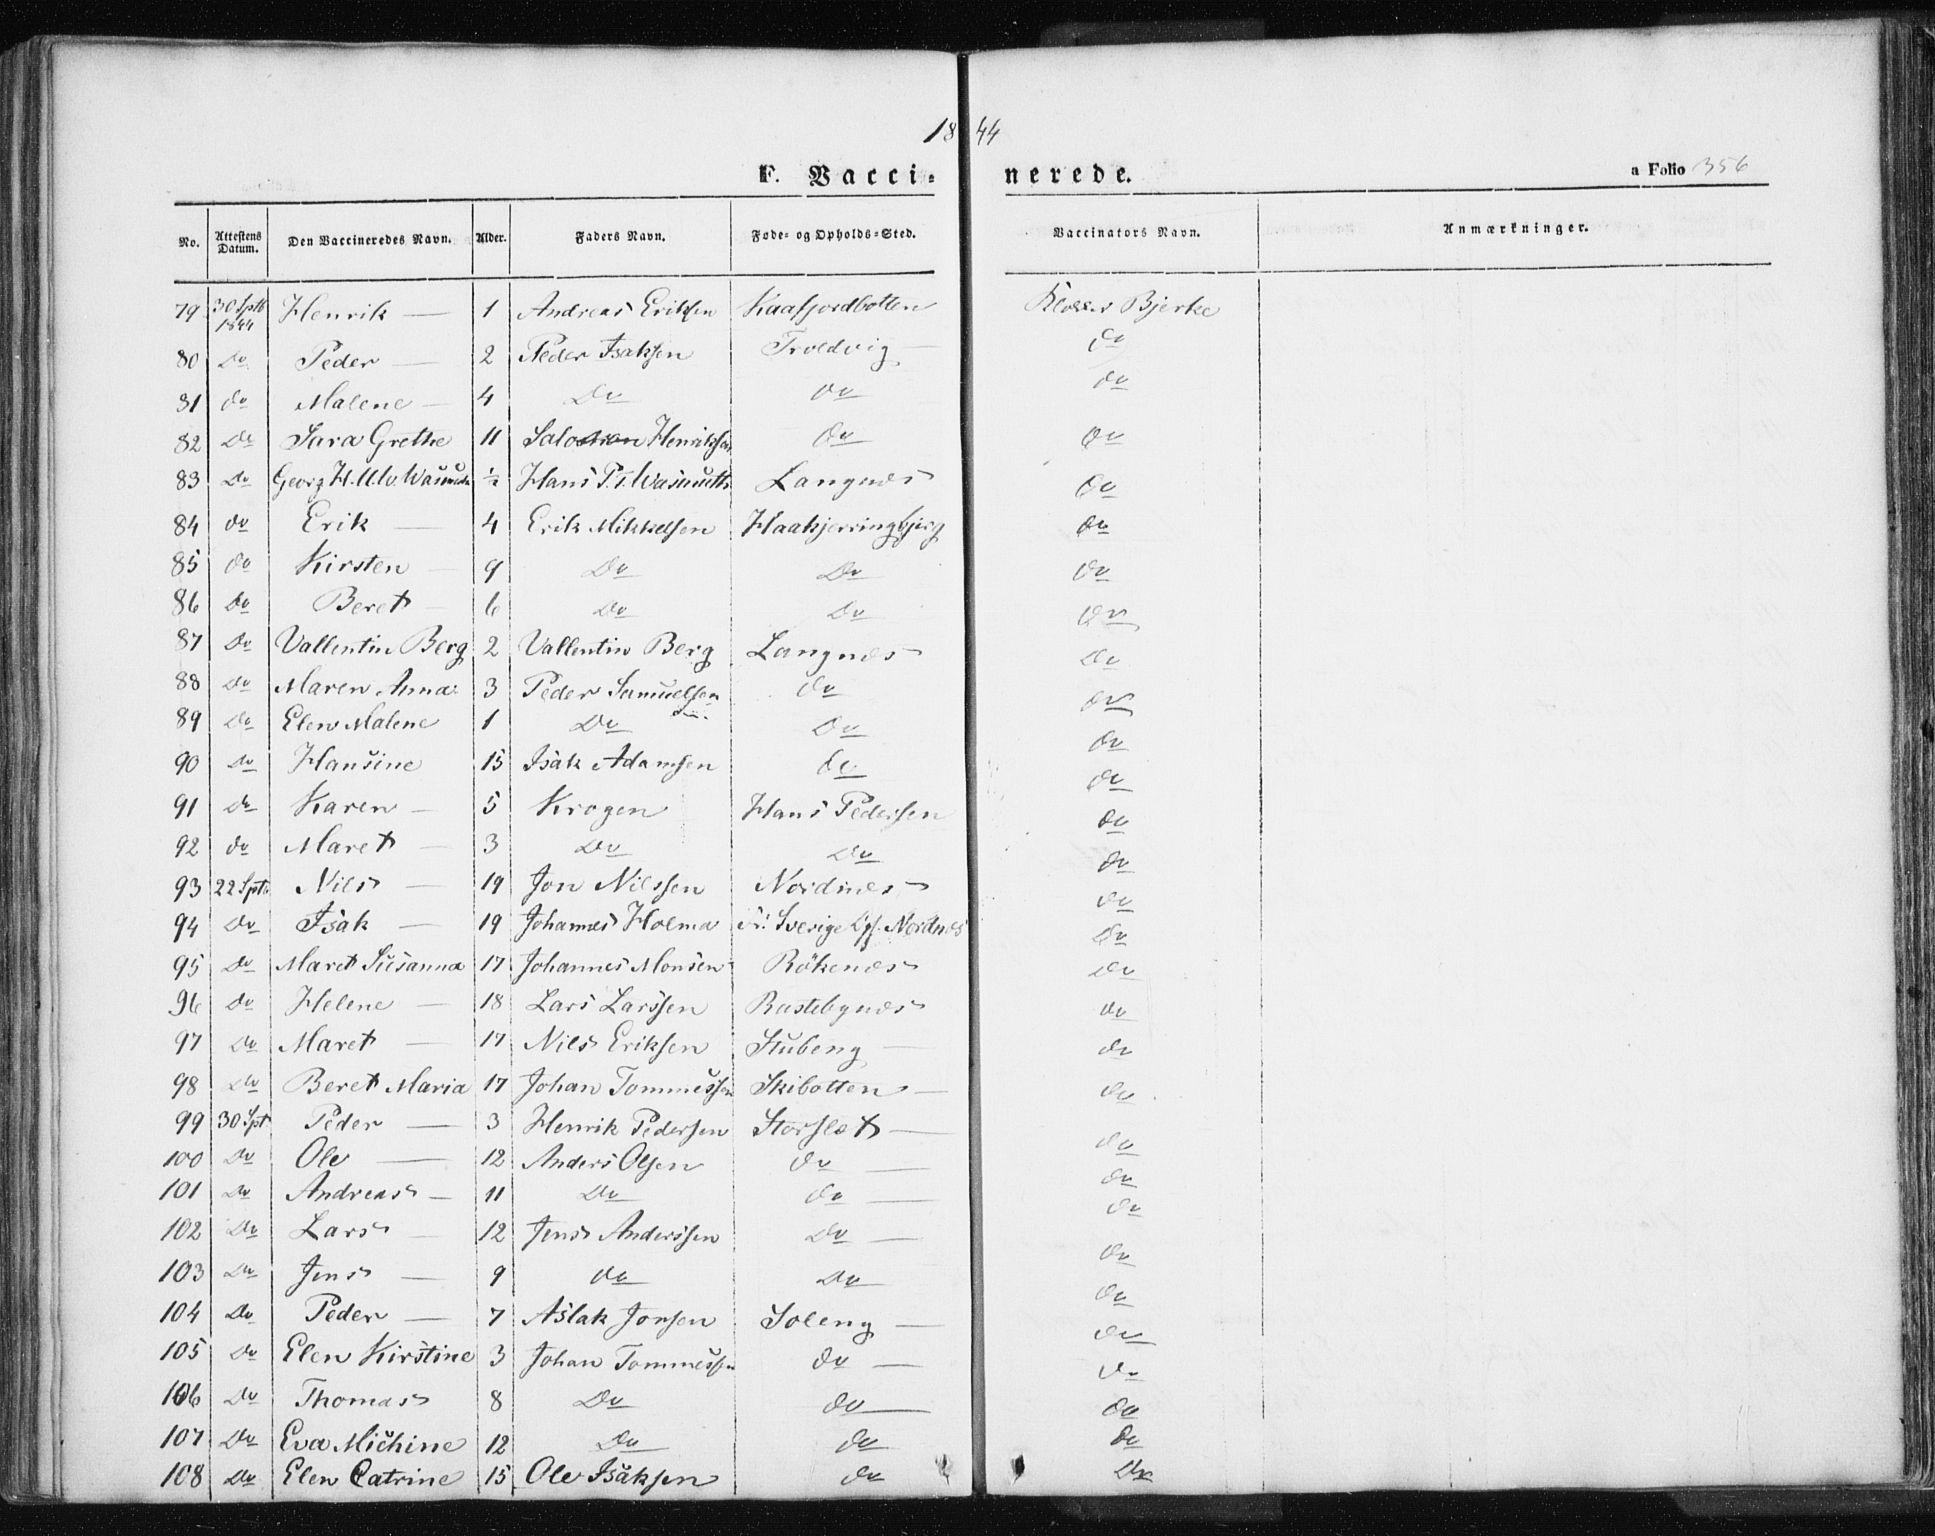 1844
F. Vaccinerede. a Folio 356
No. | Attestens Datum. | Den Vaccineredes Navn. | Alder. | Faders Navn. | Føde- og Opholds-Sted. | Vaccinators Navn. | Anmærkninger.
79 | 30 Sptb 1844 | Henrik — | 1 | Andreas Eriksen | Kaafjordbotten | Bjerke
80 | Do | Peder — | 2 | Peder Isaksen | Troldvig — | do
81 | do | Malene — | 4 | Do | do | do
82 | Do | Sara Grethe | 11 | Henriksen | do | do
83 | Do | Georg H. | ½ | Hans P. T. Wasmuth | Langnes | do
84 | do | Erik — | 4 | Erik Mikkelsen | Haakjerringbjerg | do
85 | do | Kirsten — | 9 | Do | Do | do
86 | do | Beret — | 6 | Do | Do | do
87 | do | Vallentin Berg | 2 | Vallentin Berg | Langnes | Do
88 | Do | Maren Anna | 3 | Peder Samuelsen | do | do
89 | Do | Elen Malene | 1 | Do | Do | do
90 | do | Hansine | 15 | Isak Adamsen | do | do
91 | Do | Karen — | 5 | Krogen | Hans Pedersen | do
92 | do | Maret — | 3 | Do | Do | do
93 | 22 Sptb | Nils — | 19 | Jon Nilssen | Nordnes | do
94 | Do | Isak — | 19 | Johannes Holma | Sverige Nordnes | Do
95 | Do | Maret Susanna | 17 | Johannes Monsen | Rökenes | Do
96 | Do | Helene — | 18 | Lars Larssen | Rastebynes | do
97 | Do | Maret — | 17 | Nils Eriksen | Stubeng — | do
98 | Do | Beret Maria | 17 | Johan Tommessen | Skibotten — | do
99 | 30 Spt | Peder — | 3 | Henrik Pedersen | Storslet — | do
100 | Do | Ole — | 12 | Anders Olsen | do — | do
101 | Do | Andreas — | 11 | Do | do — | do
102 | Do | Lars — | 12 | Jens Anderssen | Do — | do
103 | Do | Jens — | 9 | do | Do | do
104 | Do | Peder — | 7 | Aslak Jonsen | Soleng — | do
105 | Do | Elen Kirstine | 3 | Johan Tommessen | do — | Do
106 | Do | Thomas | 8 | Do | do — | do
107 | Do | Eva Michine | 12 | Do | do | Do
108 | Do | Elen Catrine | 15 | Ole Isaksen | do | Do